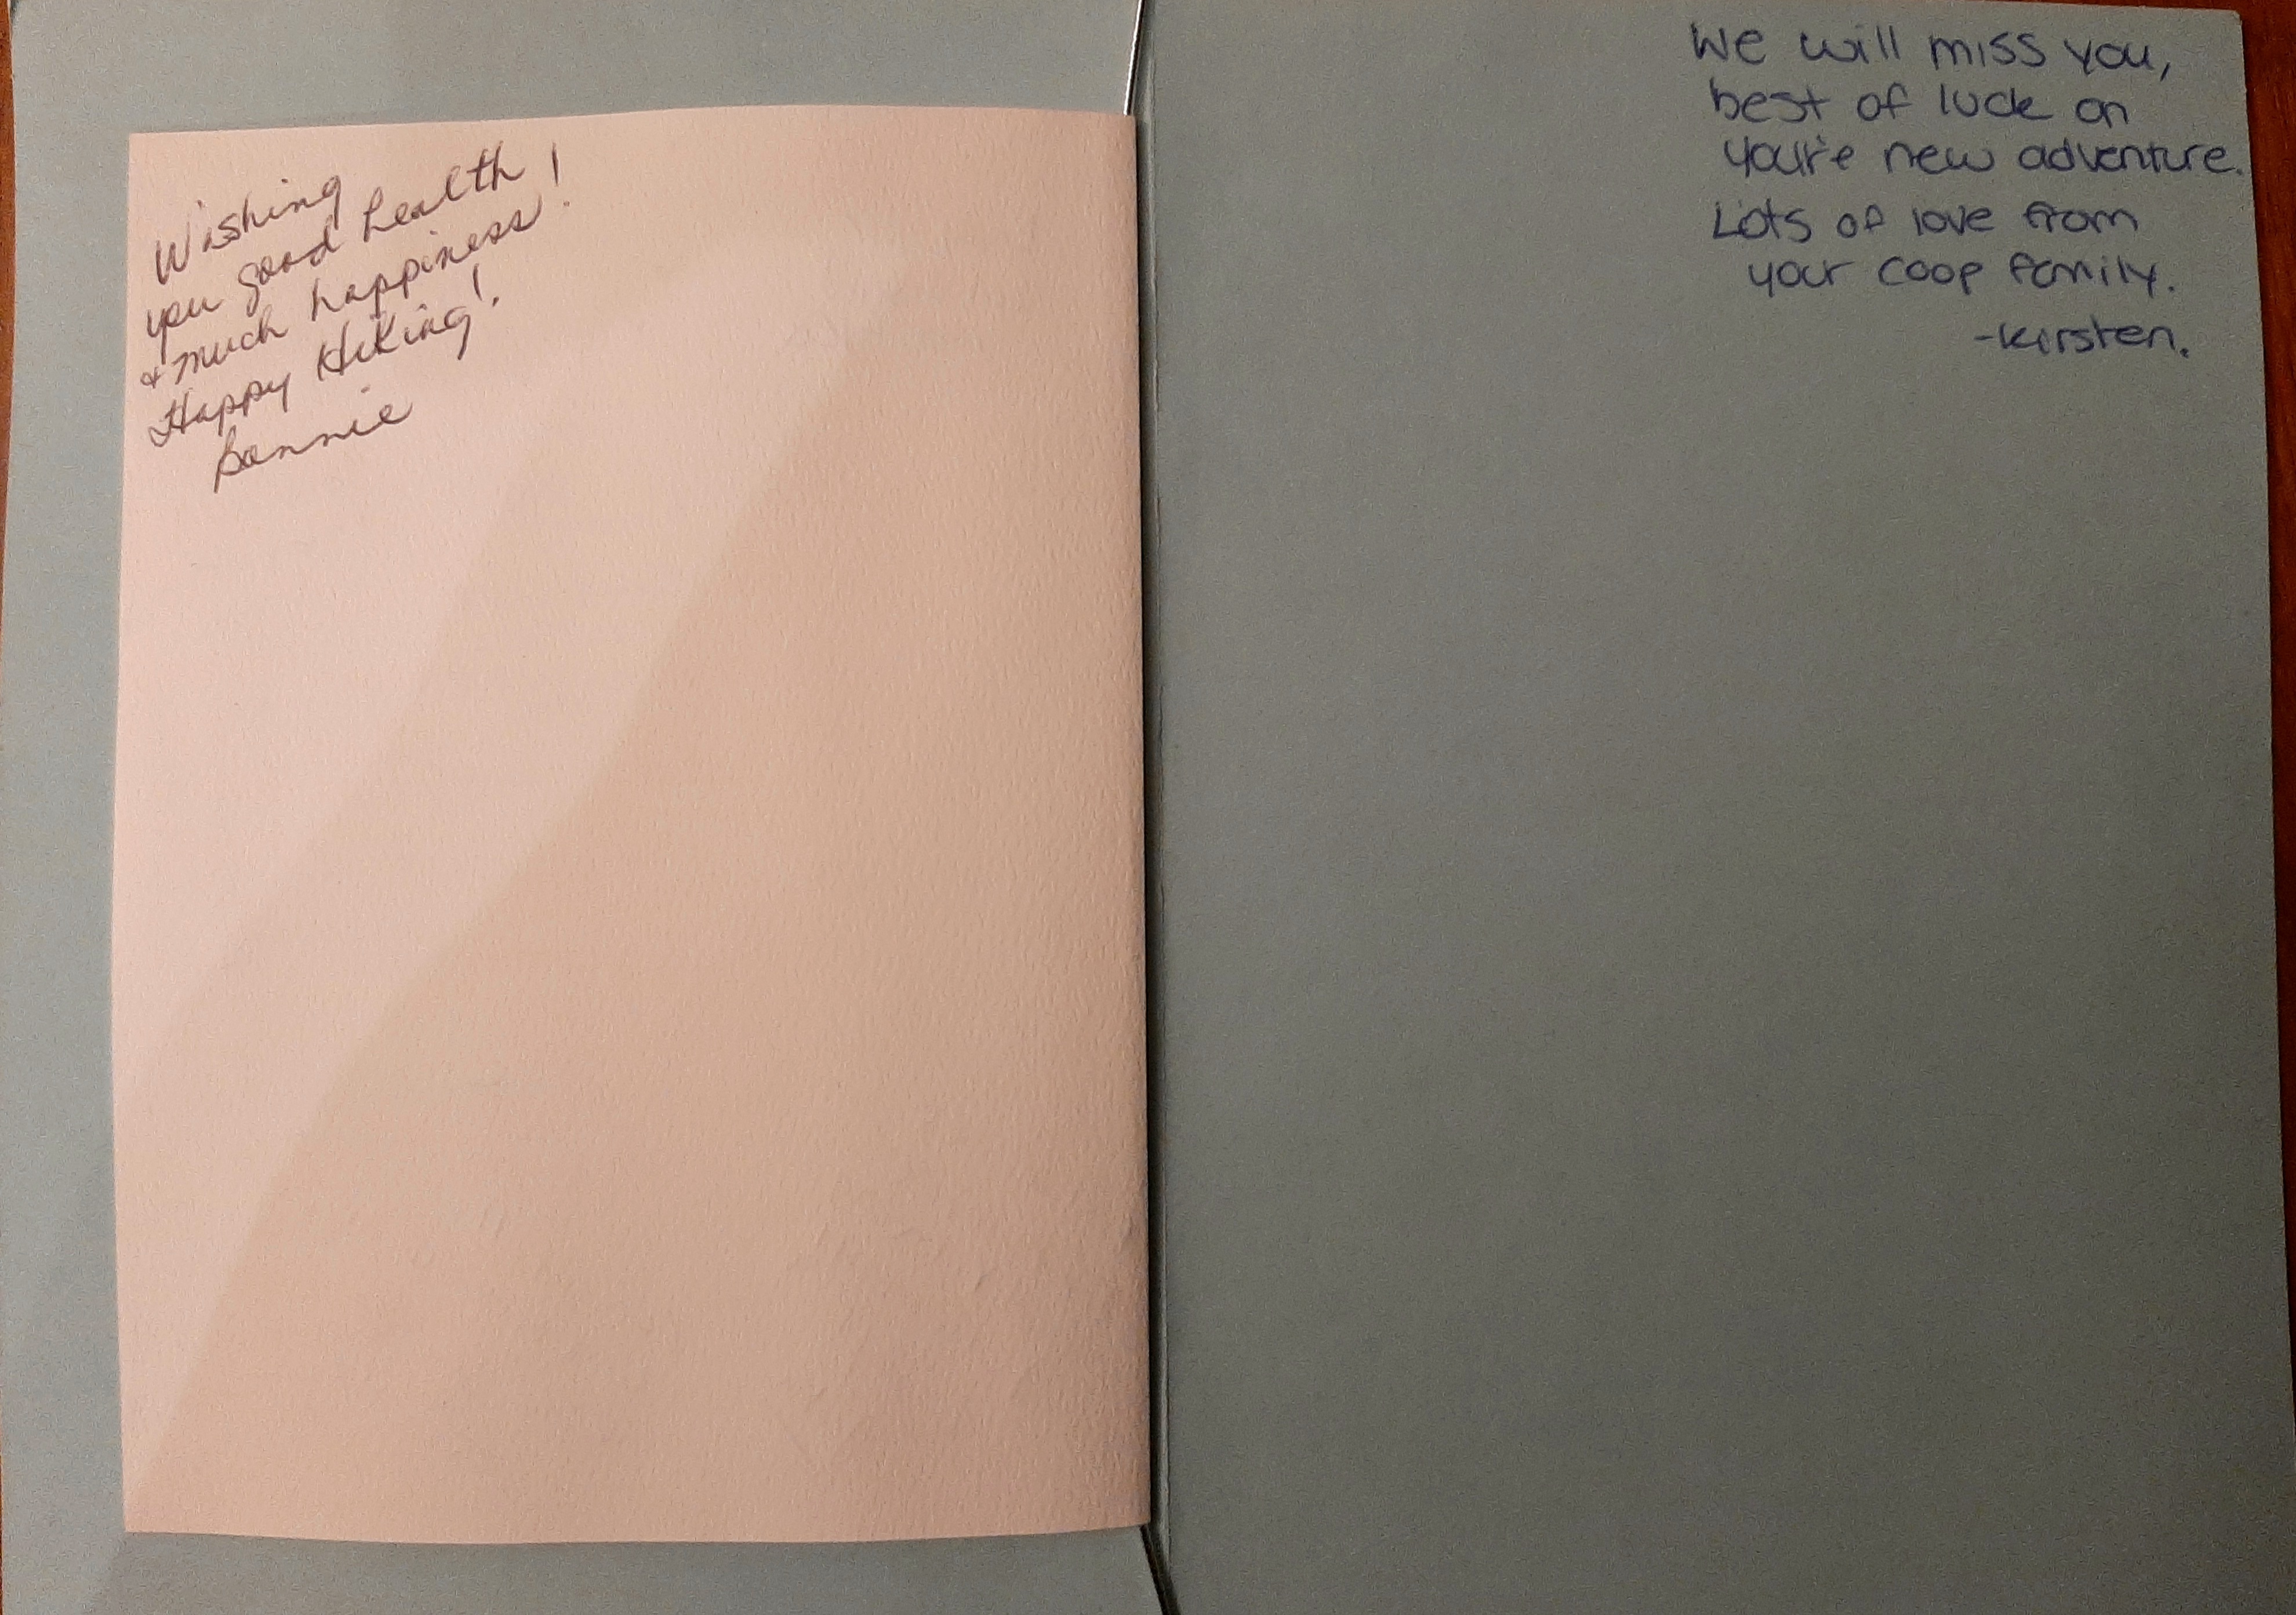 Wishing
you good health!
& much happiness!
Happy Hiking!
Bonnie
We will miss you,
best of luck on
you're new adventure.
Lots of love from
your coop family.
-Kirsten.